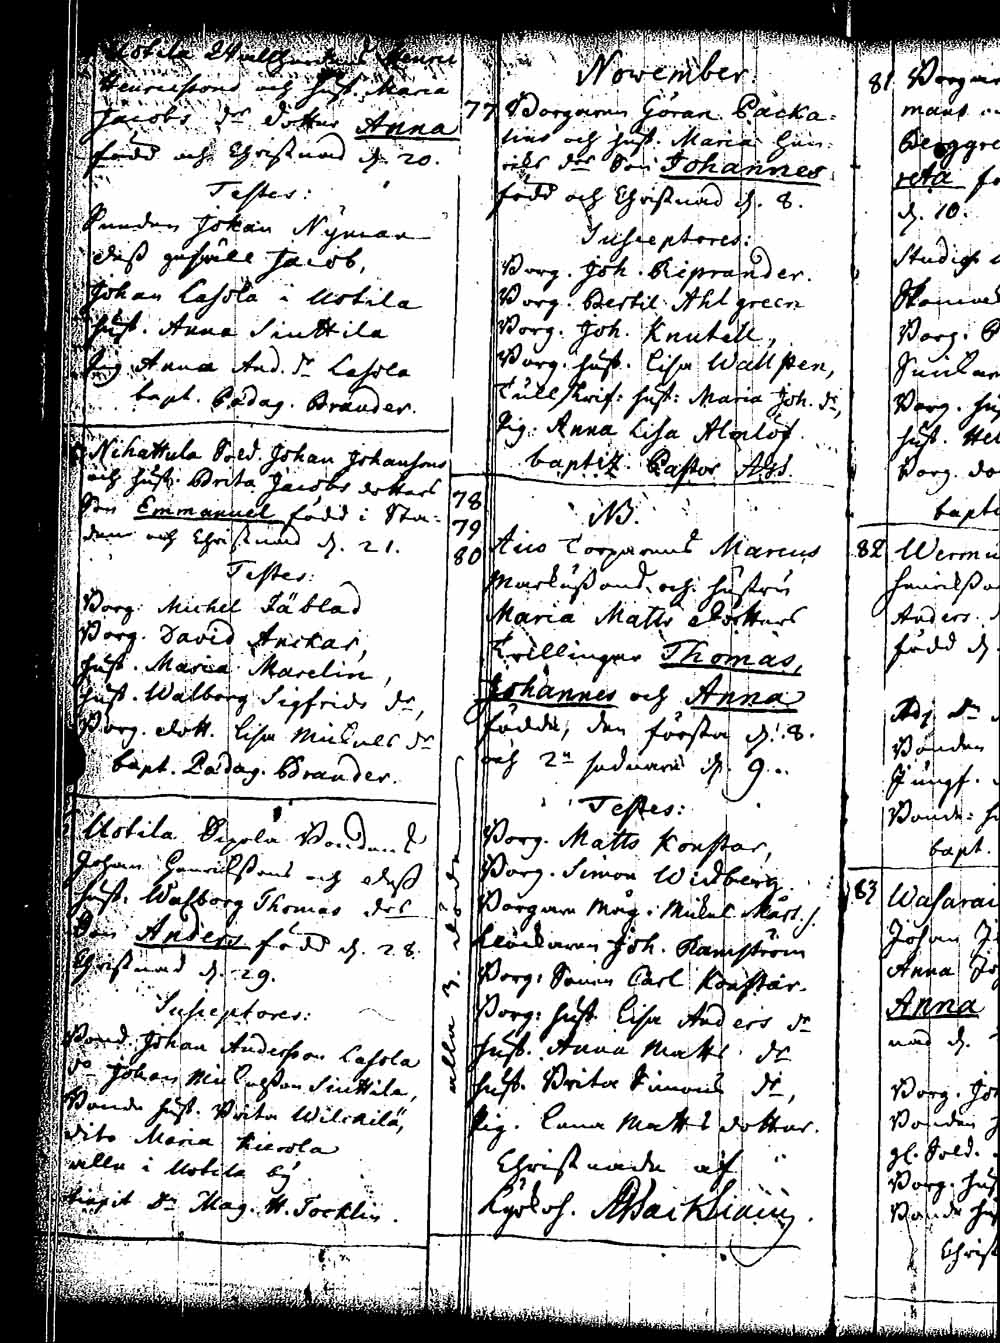 Uotila
Henricssons och hust. Maria
Jacobs dr dotter Anna
född och Christnad d. 20.
Testes:
Johan Nyman
dess gesäll Jacob,
Johan Lassola i Uotila
hust. Anna Sinttila
Pig. Anna And. dr Lassola
bapt. Pædag. Brander.
Nihattula Sold. Johan Johanssons
och hust. Brita Jacobs dotters
Son Emmanuel född i Sta-
den och Christnad d. 21.
Testes:
Borg. Michel Täblad
Borg. David Anckar,
hust. Maria Marelin,
hust. Walborg Sigfrids dr,
Borg. dott. Lisa Michels dr
bapt. Pædag. Brander.
Uotila Bonden
Johan Henricssons och dess
hust. Walborg Thomas drs
Son Anders född d. 28.
Christnad d. 29.
Susceptores:
Bond. Johan Andersson Lassola
do Johan Michelsson Sinttila,
Bonde hust. Brita Wilckilä,
dito Maria
alla i Uotila by
Mag. H. Tocklin.
alla 3 döda
November
77 Borgaren Göran Packa-
lins och hust. Maria Hen-
rics drs Son Johannes
född och Christnad d. 8.
Susceptores:
Borg. Joh. Reprander.
Borg. Bertil Ahlgreen
Borg. Joh. Knutell,
Borg. hust. Lisa Wallsten,
Tullskrif: hust: Maria Joh. dr,
Pig: Anna Lisa Almlöf
baptiz. Pastor Ass.
78
79
80
NB.
Aüo Torparens Marcus
Markussons och hustrus
Maria Matts dotters
Trillingar Thomas,
Johannes och Anna
födde, den första d. 8.
och 2ne sednare d. 9.
Testes:
Borg. Matts Konstar,
Borg. Simon Widberg
Borgaren Måg. Mickel Mårt. s.
Klockaren Joh. Ramström
Borg: Sonen Carl Konstar.
Borg: hust Lisa Anders dr
hust. Anna Matts dr
hust. Brita Simons dr,
Pig. Lena Matts dotter.
Christnade af
Kyrkoh.
81 Borgar
mans
Berggre
reta fö
d. 10.
Studios
Borg.
Borg. hus
hust. Hel
Borg. do
bapt
82 Wermu
henrikso
Anders
född d.
Adj dr
Bonden
Jungf.
Bonde: h
bapt.
83 Wasarai
Johan J
Anna Jo
Anna
nad d.
Borg. Joh
Bonden
gl. Sold.
Borg. hus
Bonde hus
Christ